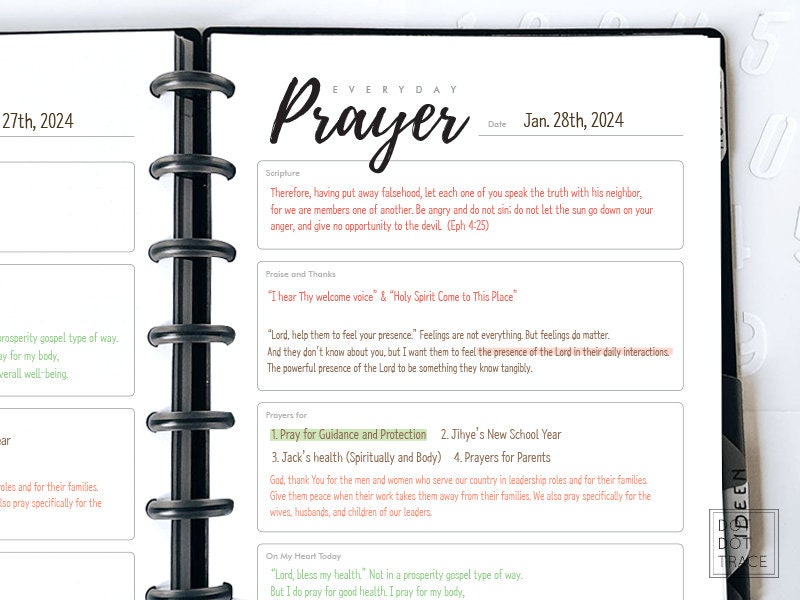 27th, 2024
prosperity gospel type of way.
ay for my body,
verall well-being.
ear
roles and for their families.
also pray specifically for the
EVERYDAY
Prayer
Date Jan. 28th, 2024
Scripture
Therefore, having put away falsehood, let each one of you speak the truth with his neighbor,
for we are members one of another. Be angry and do not sin; do not let the sun go down on your
anger, and give no opportunity to the devil. (Eph 4:25)
Praise and Thanks
“I hear Thy welcome voice” & “Holy Spirit Come to This Place”
“Lord, help them to feel your presence.” Feelings are not everything. But feelings do matter.
And they don’t know about you, but I want them to feel the presence of the Lord in their daily interactions.
The powerful presence of the Lord to be something they know tangibly.
Prayers for
1. Pray for Guidance and Protection 2. Jihye’s New School Year
3. Jack’s health (Spiritually and Body) 4. Prayers for Parents
God, thank You for the men and women who serve our country in leadership roles and for their families.
Give them peace when their work takes them away from their families. We also pray specifically for the
wives, husbands, and children of our leaders.
On My Heart Today
“Lord, bless my health.” Not in a prosperity gospel type of way.
But I do pray for good health. I pray for my body,
IDEEN
DO
DOT
TRACE